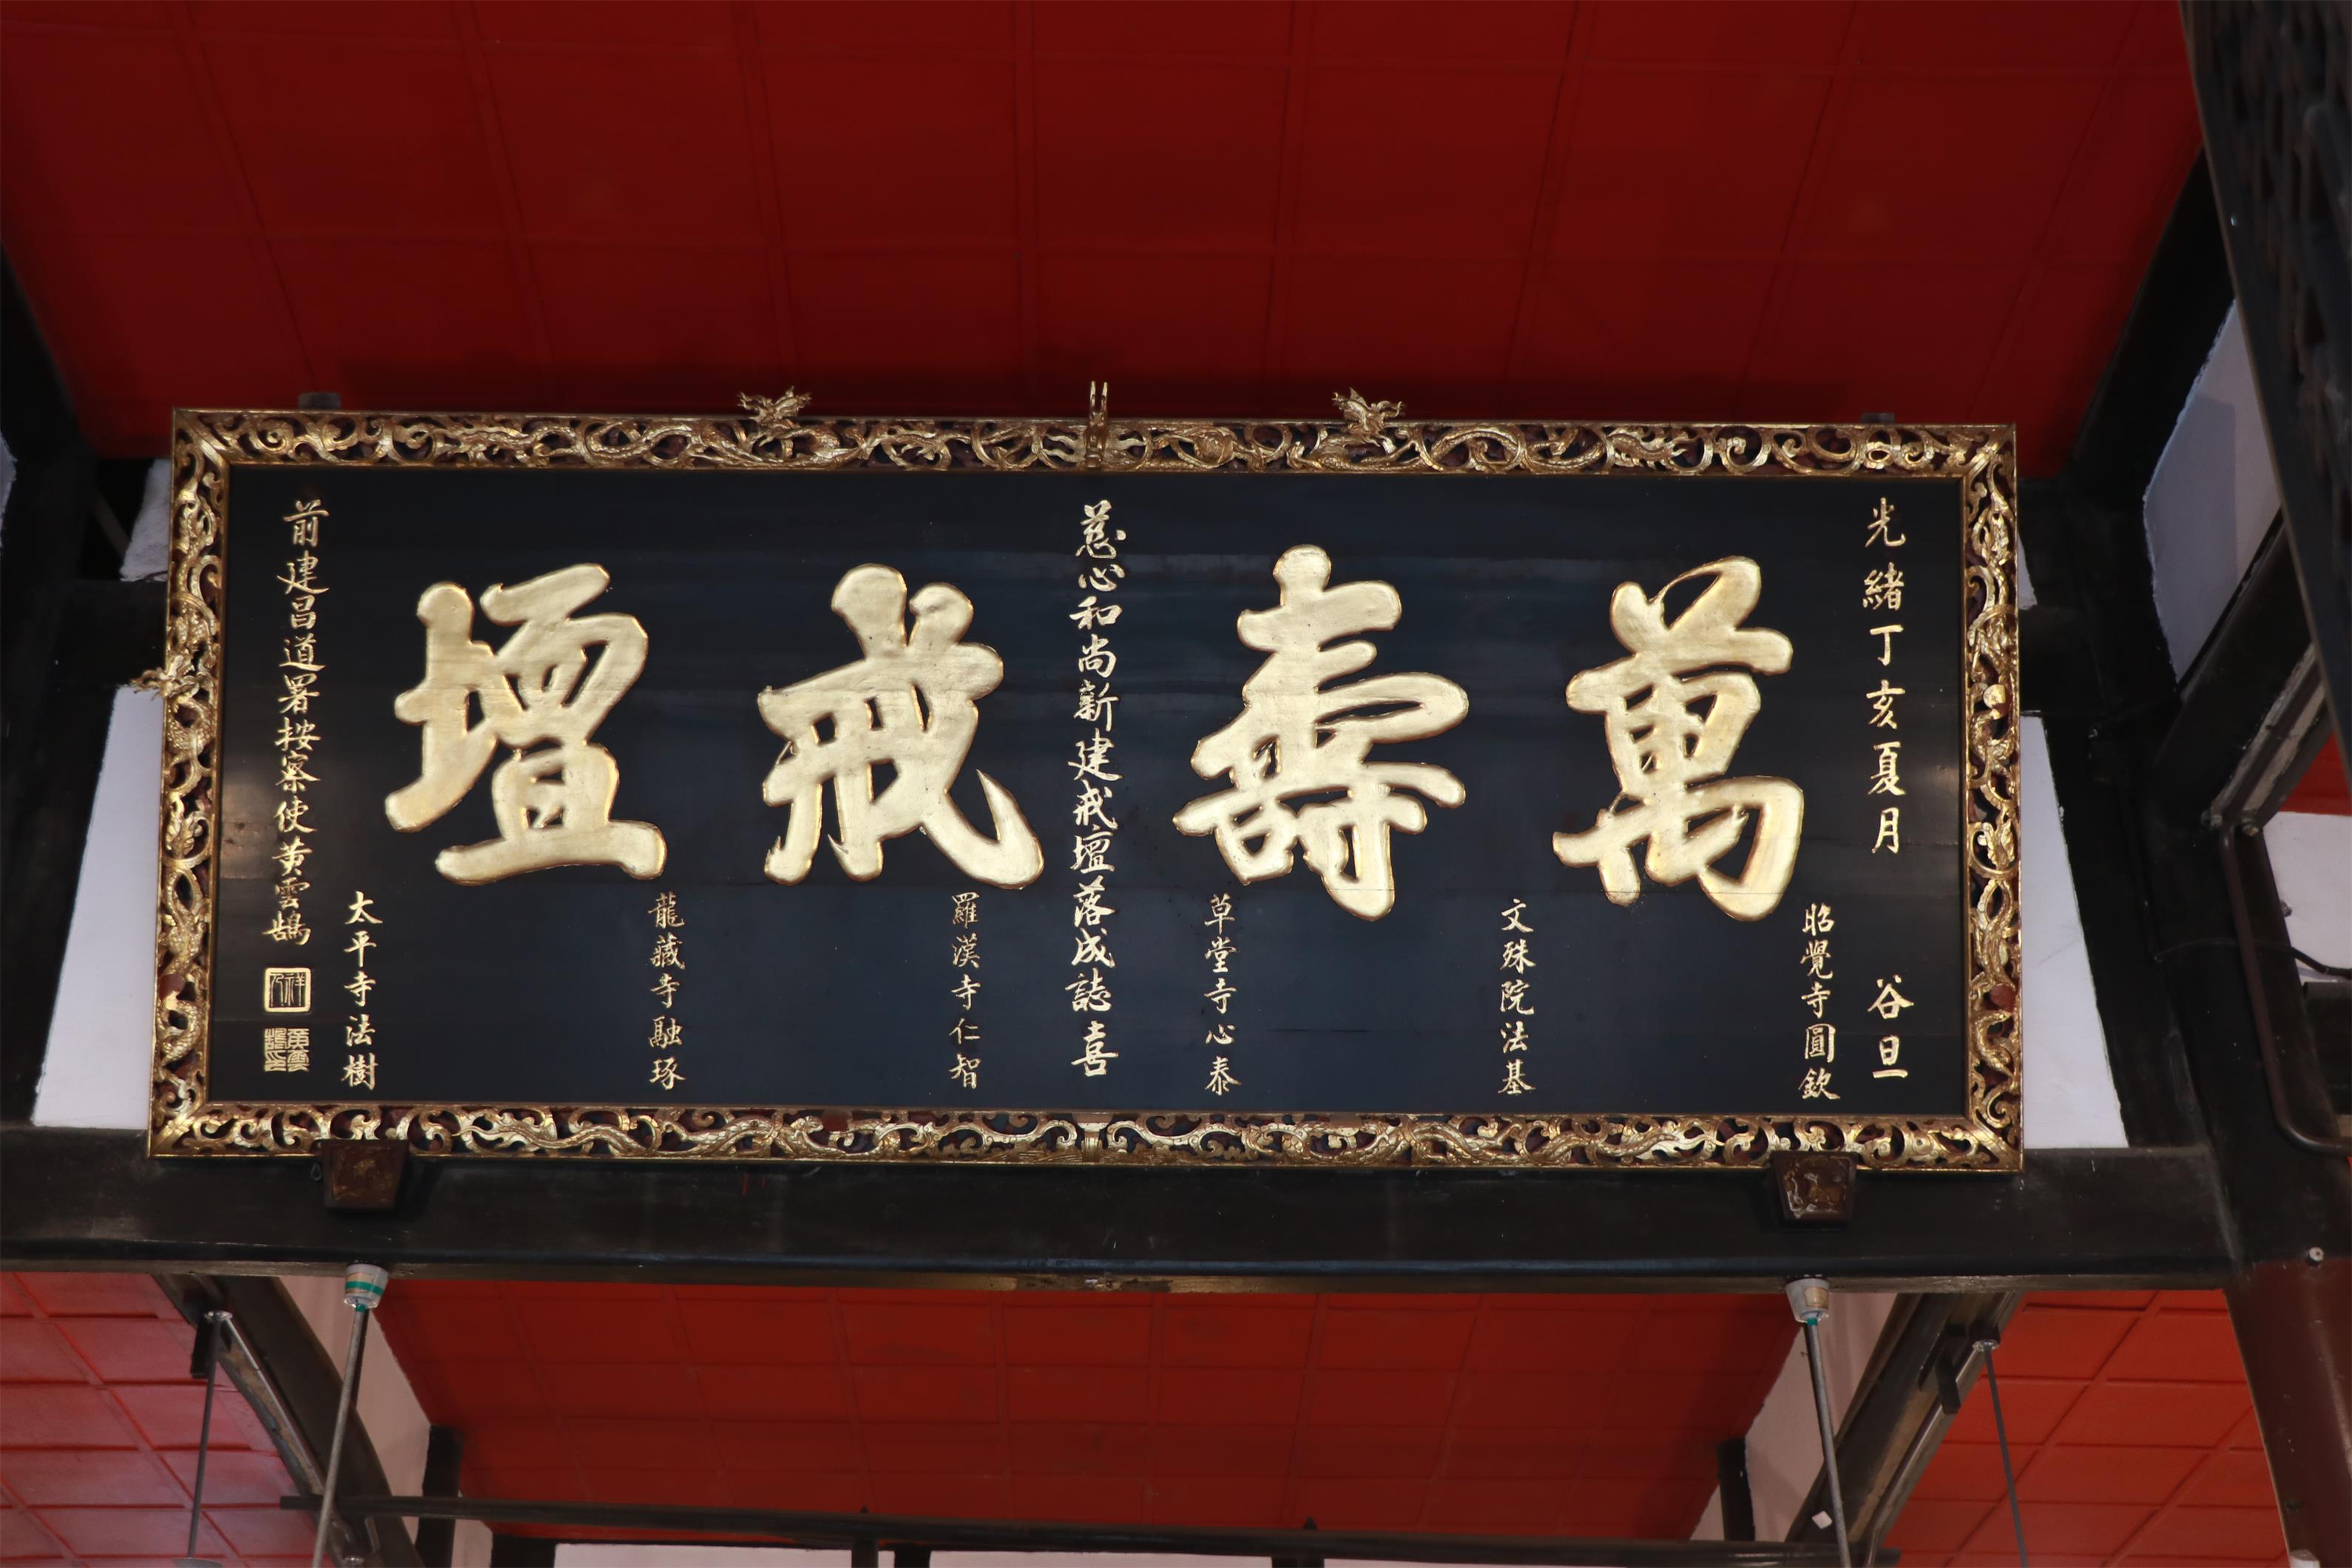 光緒丁亥夏月 谷旦
萬壽戒壇
慈心和尚新建戒壇落成誌喜
昭覺寺圓欽
文殊院法基
草堂寺心泰
羅漢寺仁智
龍藏寺融琢
太平寺法樹
前建昌道署按察使黃雲鵠
黃雲鵠印